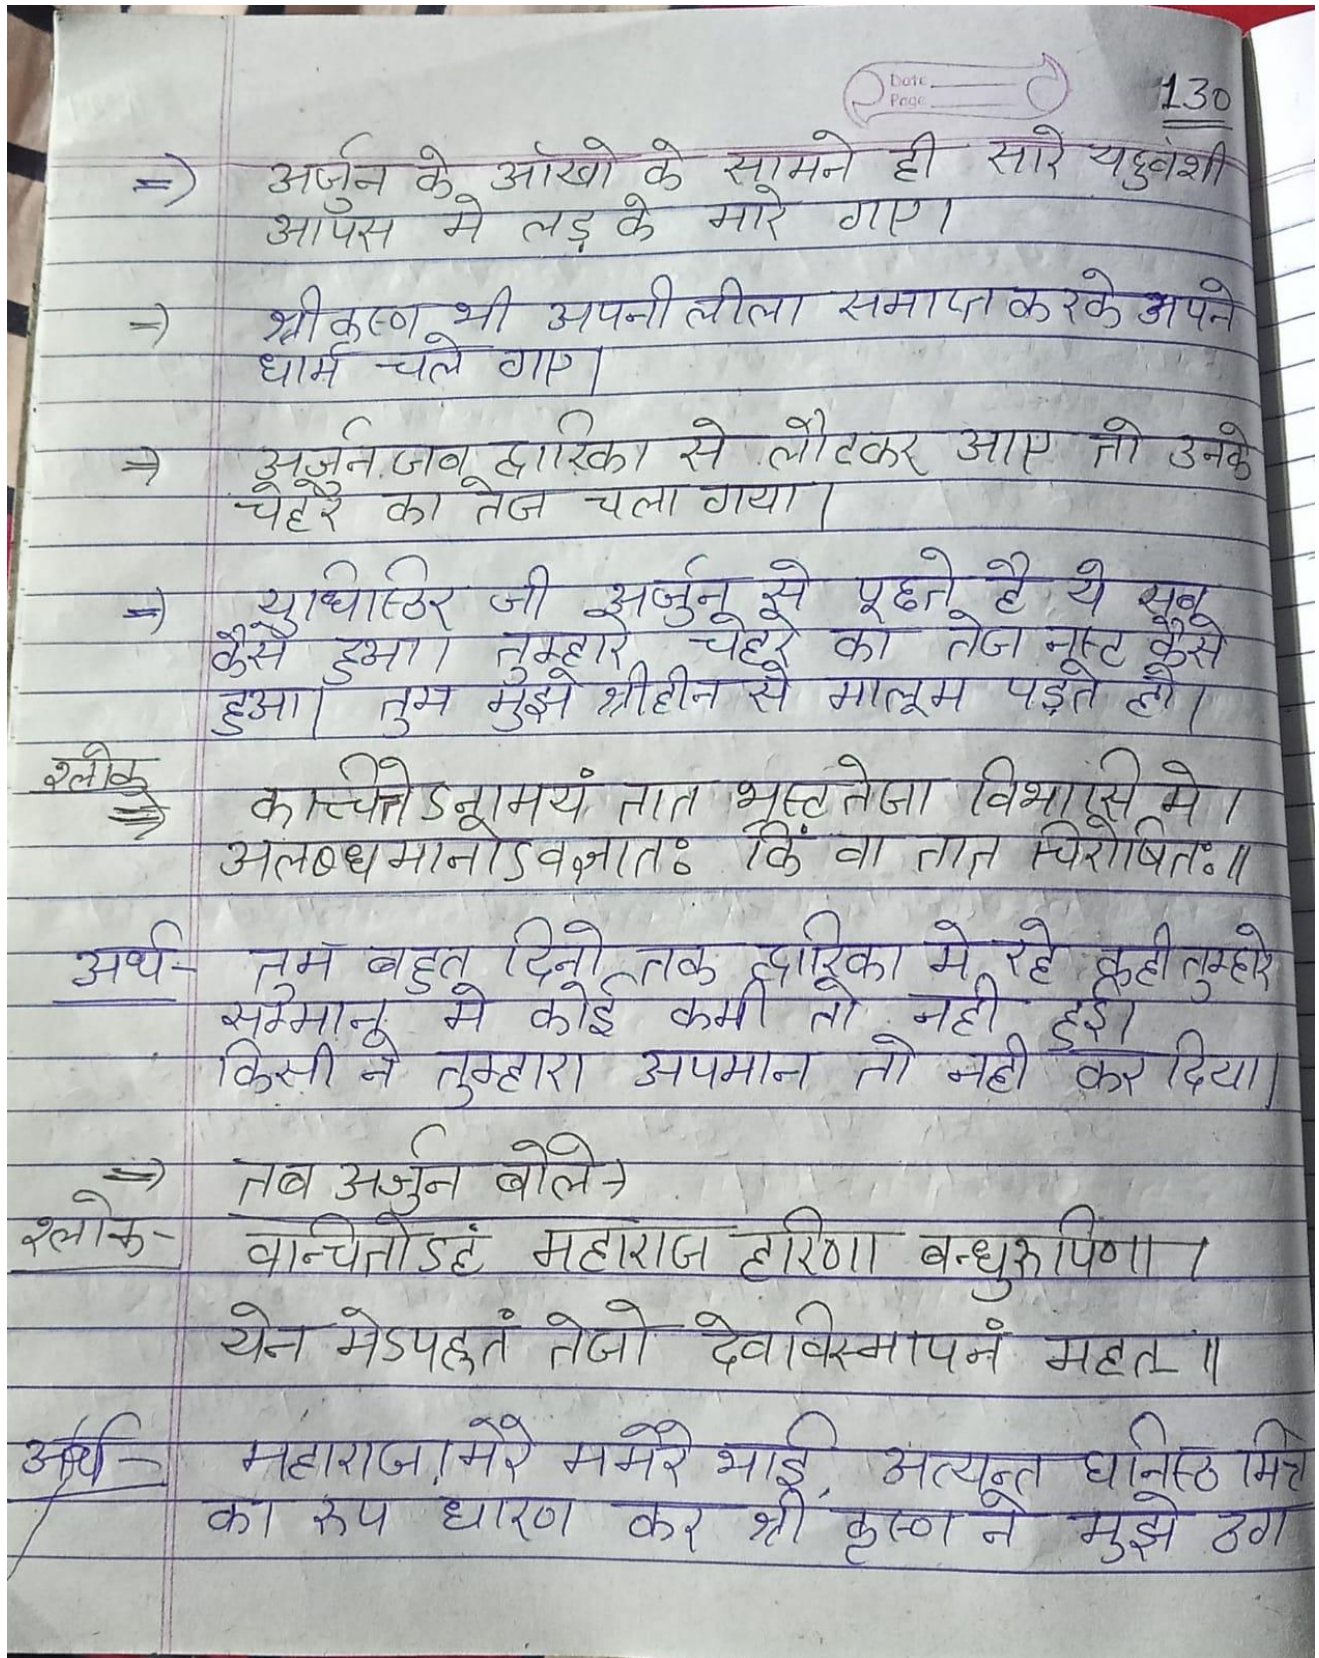 Date
Page
130
=) अर्जुन के आँखो के सामने ही सारे यदुवंशी
आपस मे लड़ के मारे गए।
=) श्री कृष्ण भी अपनी लीला समाप्त करके अपने
धाम चले गए।
=) अर्जुन जब द्वारिका से लौटकर आए तो उनके
चेहरे का तेज चला गया।
=) युधिष्ठिर जी अर्जुन से पूछते है ये सब
कैसे हुआ। तुम्हारे चेहरे का तेज नष्ट कैसे
हुआ। तुम मुझे श्रीहीन से मालूम पड़ते हो।
श्लोक
=) कच्चित्तेऽनामयं तात भ्रष्टतेजा विभासि मे।
अलब्धमानोऽवज्ञातः किं वा तात चिरोषितः॥
अर्थ- तुम बहुत दिनो तक द्वारिका मे रहे कही तुम्हारे
सम्मान मे कोई कमी तो नही हुई।
किसी ने तुम्हारा अपमान तो नही कर दिया।
=) तब अर्जुन बोले→
श्लोक- वन्चितोऽहं महाराज हरिणा बन्धुरूपिणा।
येन मेऽपहृतं तेजो देवविस्मापनं महत्॥
अर्थ- महाराज! मेरे ममेरे भाई, अत्यन्त घनिष्ठ मित्र
का रूप धारण कर श्री कृष्ण ने मुझे ठग